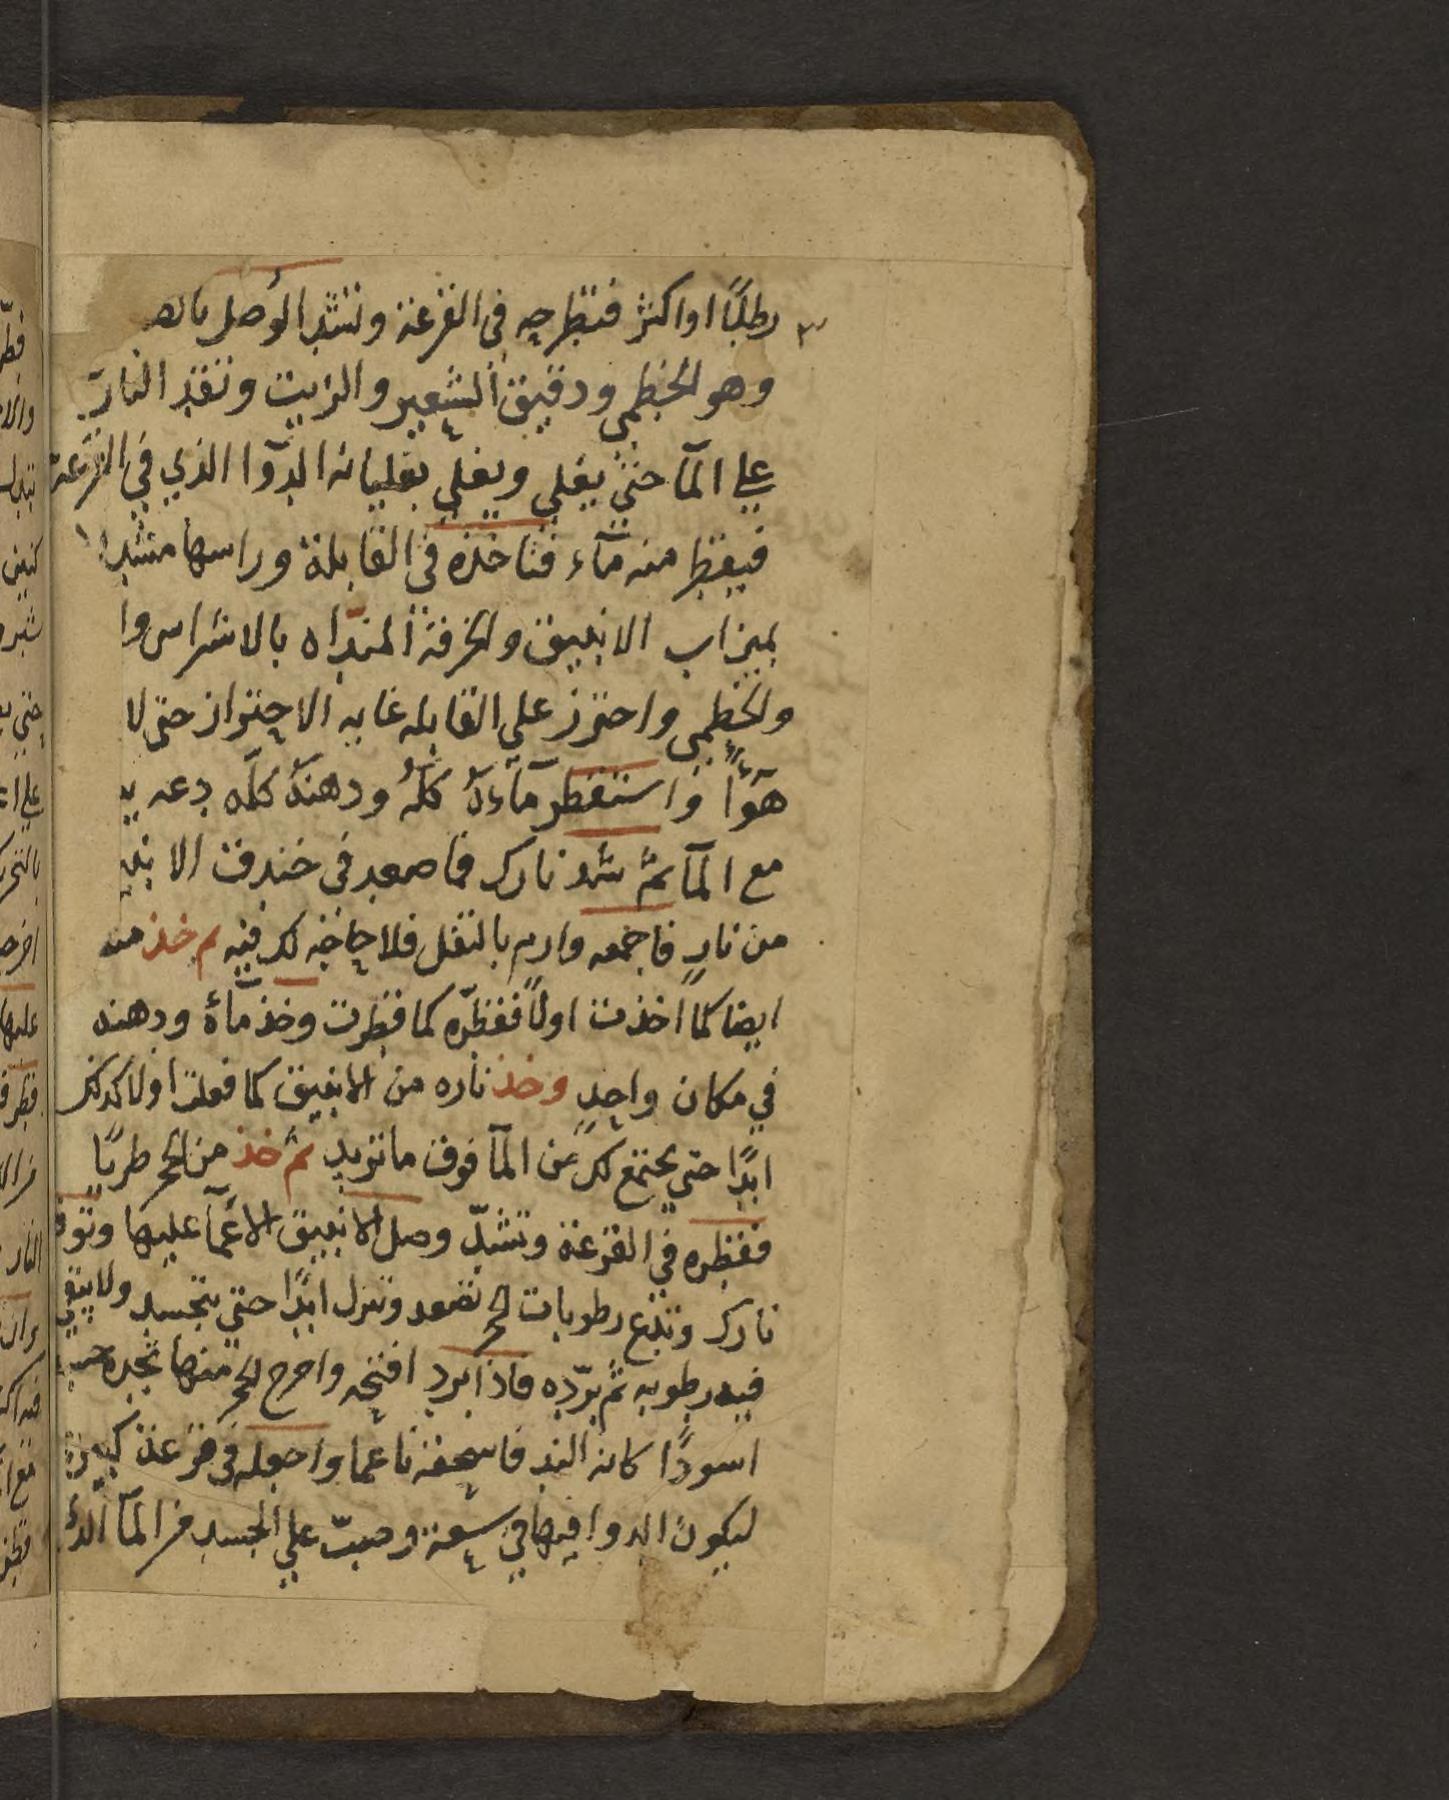 رطلًا او اكثر فتطرحه في القرعة وتشد الوصل بالص
وهو الخطمي ودقيق الشعير والزيت وتقد النار
علي المآ حتي يغلي ويغلي بغليانه الدوآ الذي في القرعة
فيقطر منه مآء فتاخذه في القابلة وراسها مشد
بميزاب الانبيق والخرقة المنداه بالاشراس وا
والخطمي واحترز علي القابله غايه الاحتراز حتي لا
هوآءً فاستقطر مآءهُ كلَّهُ ودهنهُ كلَّه دعه
مع المآ ثم شد نارك فما صعد في خندق الانبي
من نارٍ فاجمعه وارم بالثفل فلا حاجة لك فيه ثم خذ منه
ايضا كما اخذت اولًا فقطّره كما قطرت وخذ مآهُ ودهنه
في مكان واحدٍ وخذ ناره من الانبيق كما فعلت اولا كذلك
ابدًا حتي يجتمع لك من المآ فوق ما تريد ثم خذ من الحجر طريًا
فقطره في القرعة وتشدّ وصل الانبيق الاعمآ عليها وتوقد
نارك وتدع رطوبات الحجر تصعد وتنزل ابدًا حتي يتجسد ولا يبقي
فيه رطوبه ثم برّده فاذا برد افتحه واخرج الحجر منها تجده
اسودًا كانه الند فاسحقه ناعما واجعله في قرعة كبيرة
ليكون الدوا فيها في سعة وصبّ علي الجسد من المآ الذي